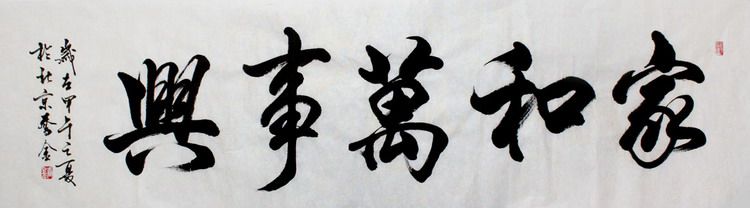 家和萬事興
歲在甲午之夏
於北京